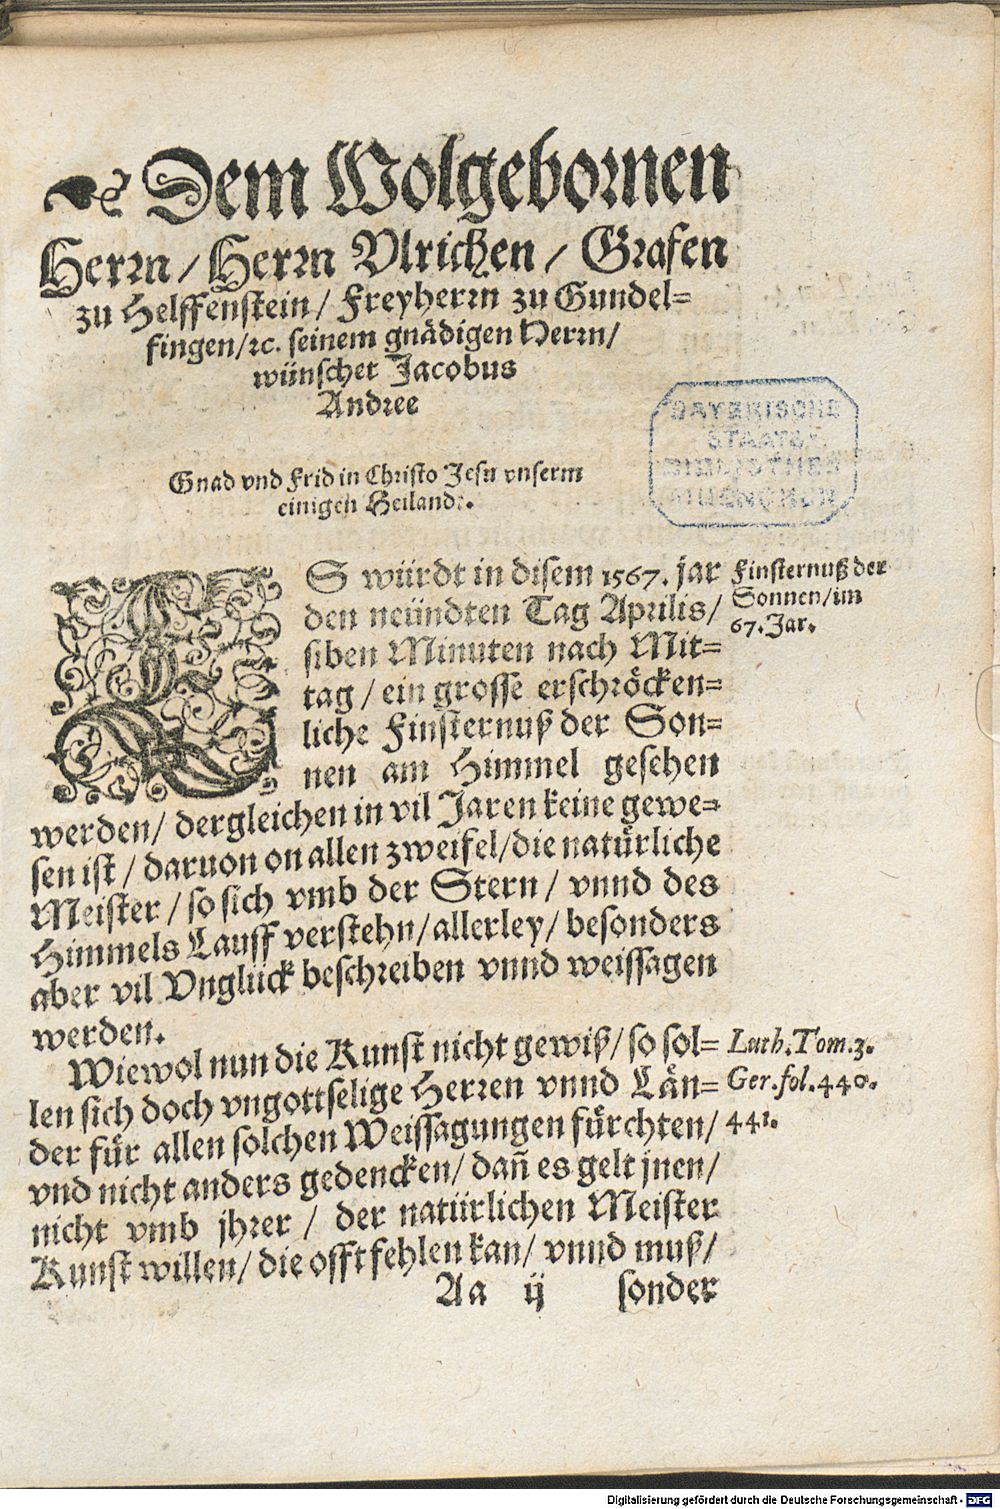 Dem Wolgebornen
Herrn / Herrn Vlrichen / Grafen
zu Helffenstein / Freyherrn zu Gundel=
fingen / ꝛc. seinem gnädigen Herrn /
wünschet Jacobus
Andree
Gnad vnd Frid in Christo Jesu vnserm
einigen Heilandt.
BAYERISCHE
STAATS-
BIBLIOTHEK
MUENCHEN
ES würdt in disem 1567. jar
den neündten Tag Aprilis /
siben Minuten nach Mit=
tag / ein grosse erschröcken=
liche Finsternuß der Son=
nen am Himmel gesehen
werden / dergleichen in vil Jaren keine gewe=
sen ist / daruon on allen zweifel / die natürliche
Meister / so sich vmb der Stern / vnnd des
Himmels Lauff verstehn / allerley / besonders
aber vil Vnglück beschreiben vnnd weissagen
werden.
Finsternuß der
Sonnen / im
67. Jar.
Wiewol nun die Kunst nicht gewiß / so sol=
len sich doch vngottselige Herren vnnd Län=
der für allen solchen Weissagungen fürchten /
vnd nicht anders gedencken / dañ es gelt jnen /
nicht vmb jhrer / der natürlichen Meister
Kunst willen / die offt fehlen kan / vnnd muß /
Luth. Tom. 3.
Ger. fol. 440.
441.
Aa ij sonder
Digitalisierung gefördert durch die Deutsche Forschungsgemeinschaft - DFG